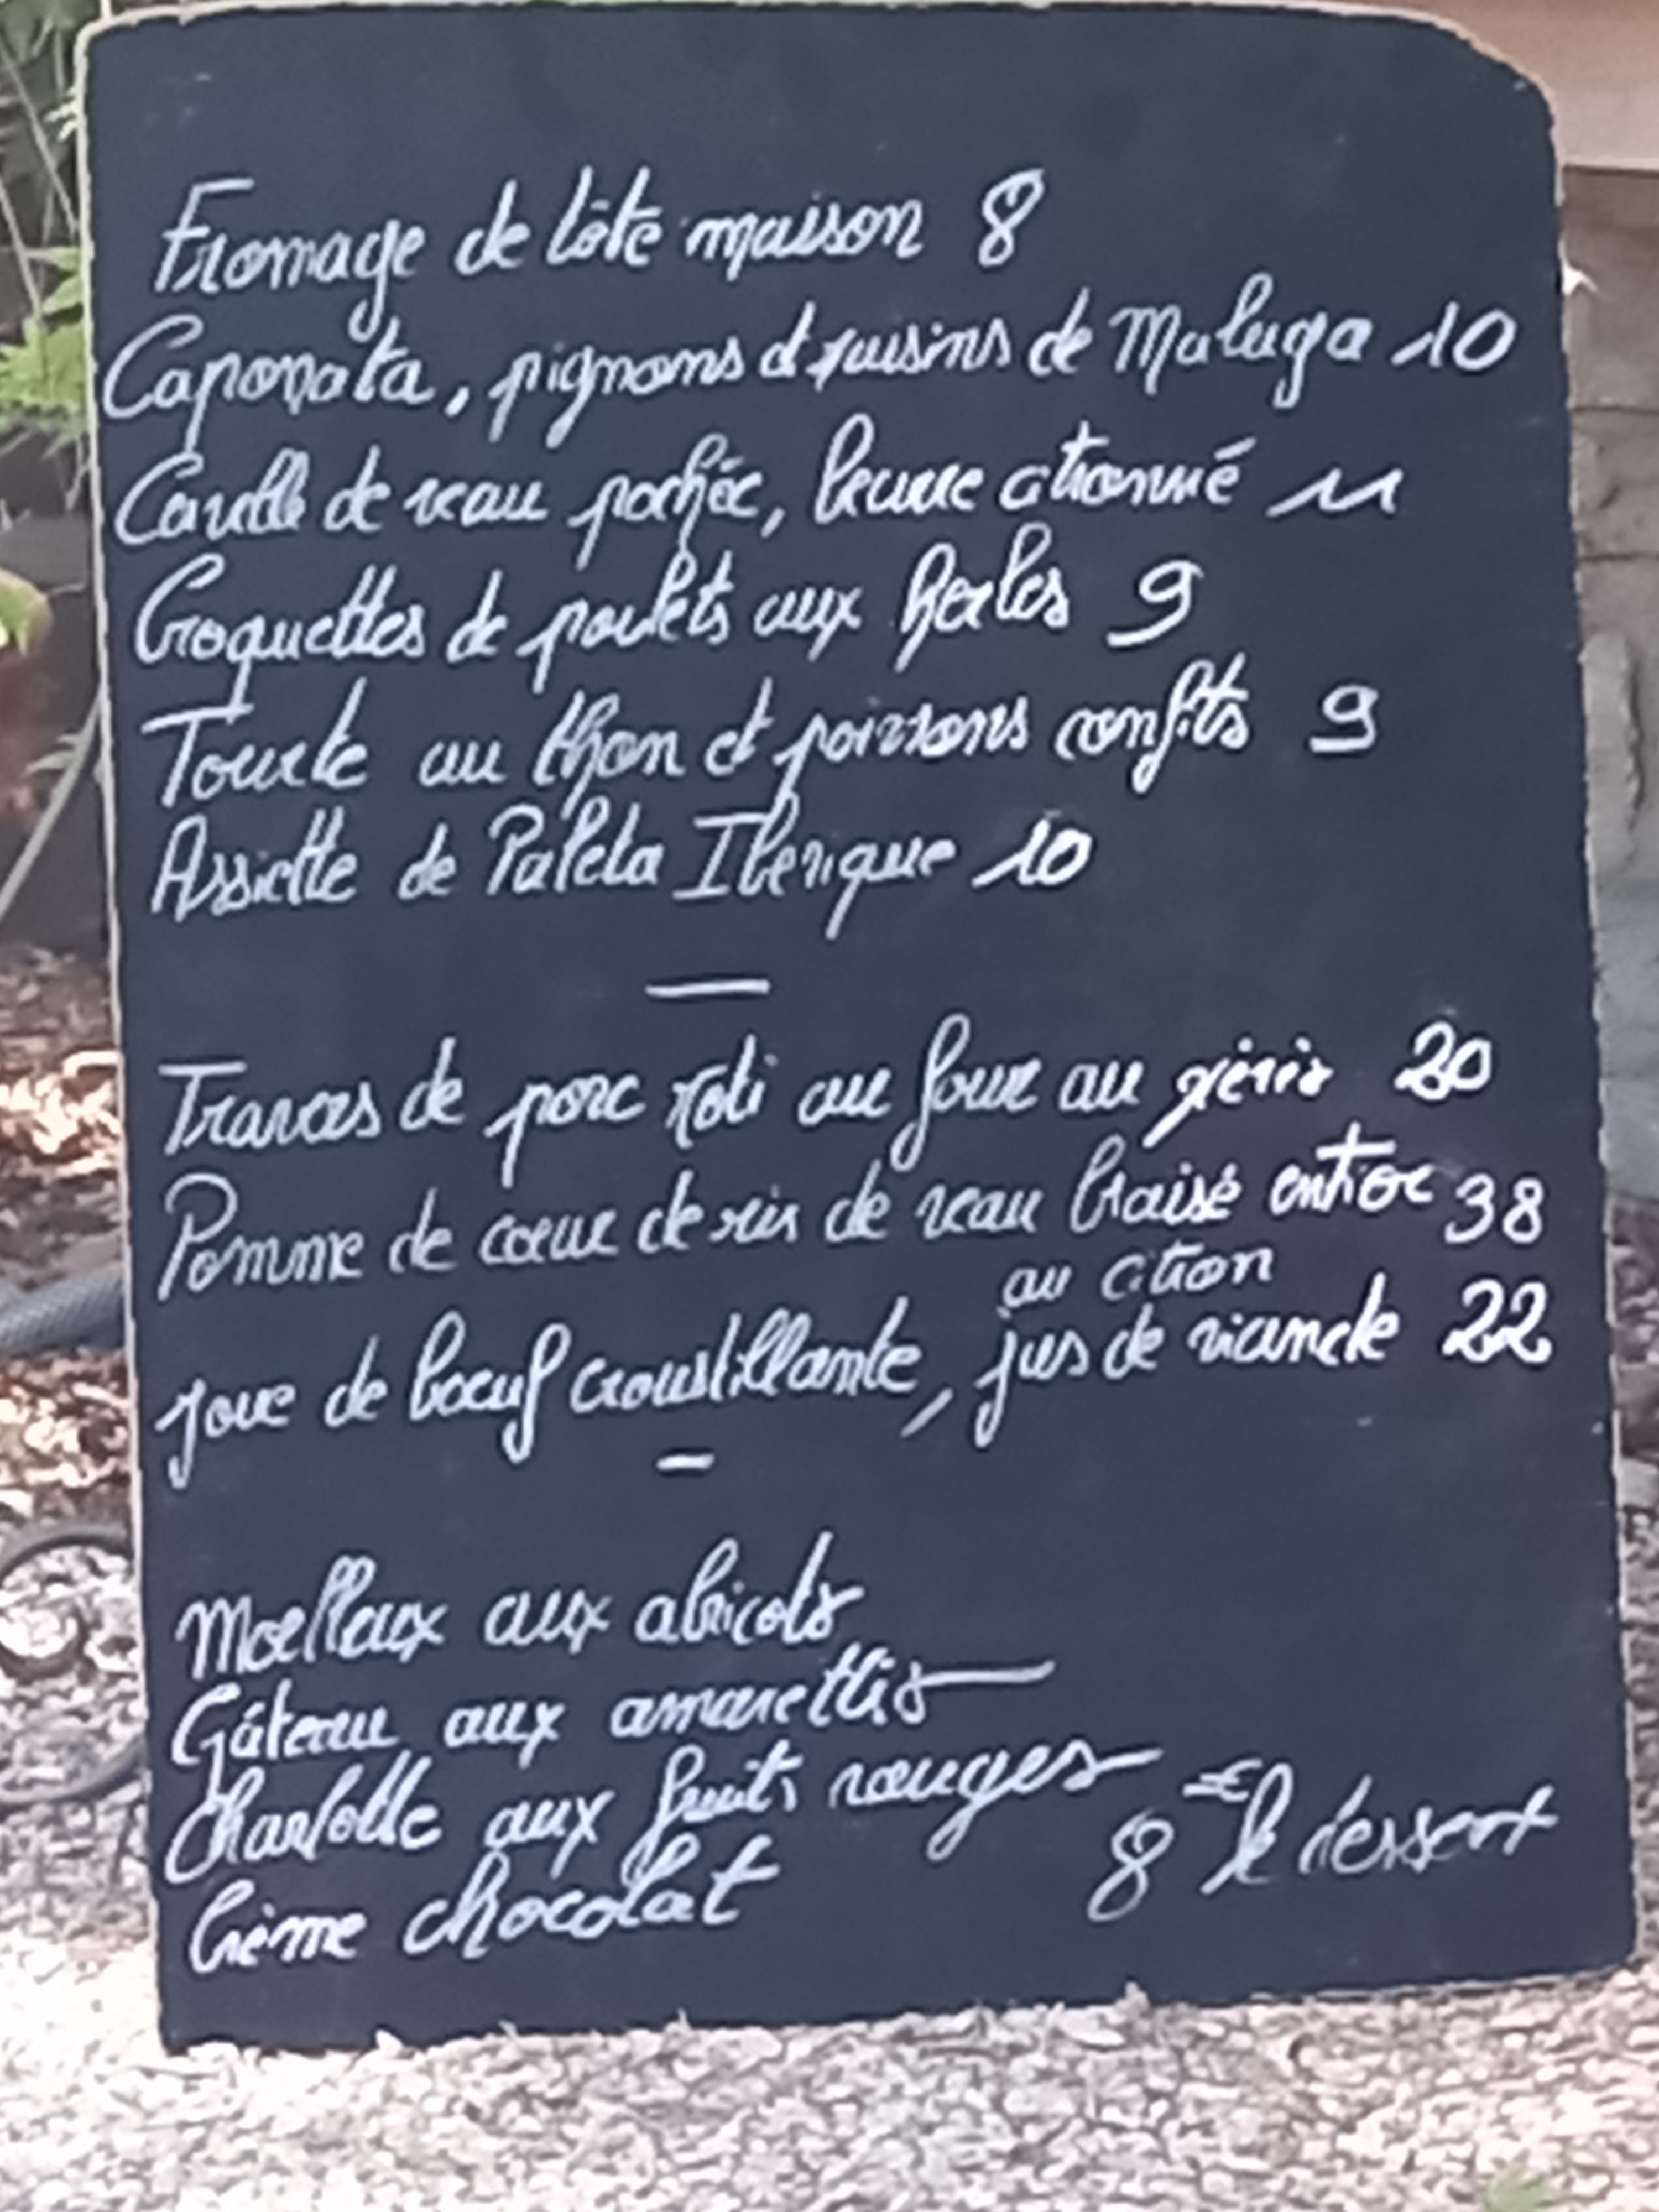 Fromage de tête maison 8
Caponata, pignons et raisins de Malaga 10
Cervelle de veau pochée, beurre citronné 11
Croquettes de poulets aux herbes 9
Tourte au thon et poivrons confits 9
Assiette de Paleta Iberique 10
—
Travers de porc roti au four au xérès 20
Pomme de coeur de ris de veau braisé entier 38
au citron
joue de boeuf croustillante, jus de viande 22
–
Moelleux aux abricots
Gâteau aux amarettis
Charlotte aux fruits rouges
8€ le dessert
Crème chocolat